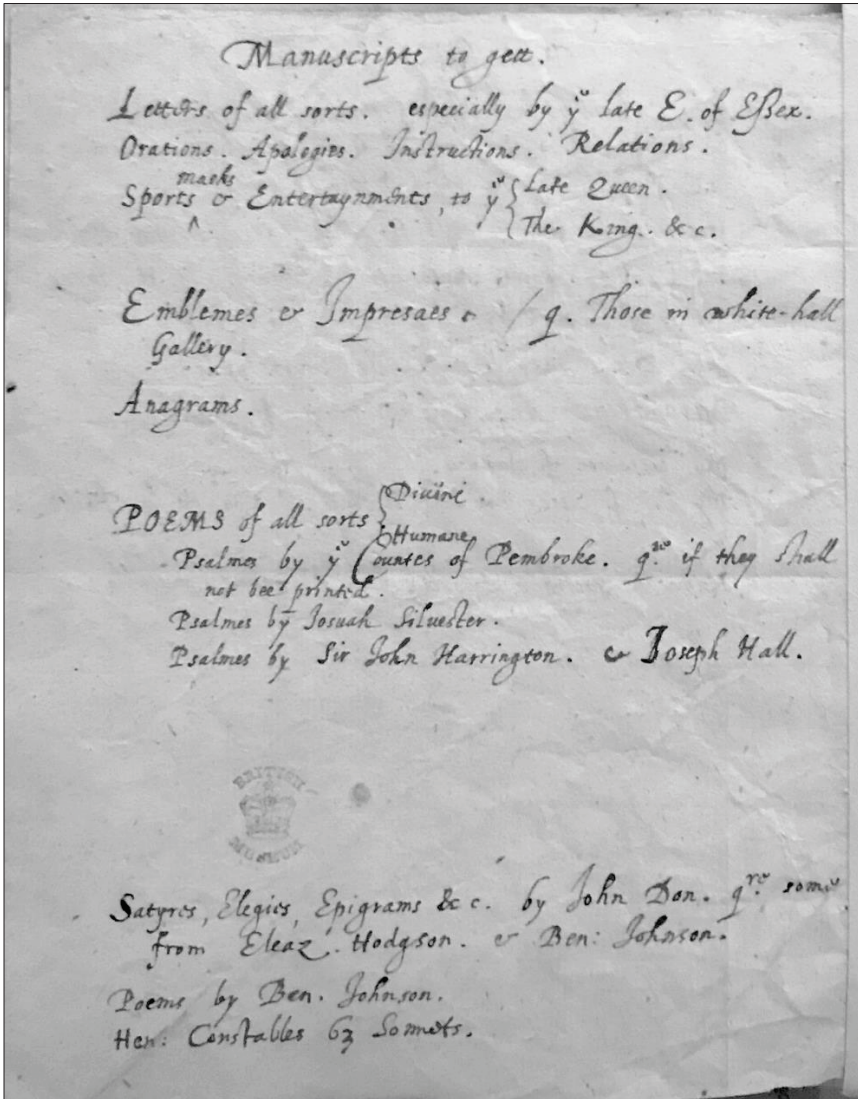 Manuscripts to gett.
Letters of all sorts. especially by yᵉ late E. of Eſsex.
Orations. Apologies. Instructions. Relations.
masks
Sports ^ & Entertaynments, to yᵉ { Late Queen.
{ The King. &c.
Emblemes & Impresaes. / q. Those in white-hall
Gallery.
Anagrams.
POEMS of all sorts { Divine.
{ Humane
Psalmes by yᵉ Countes of Pembroke. qʳᵉ. if they shall
not bee printed.
Psalmes by Josuah Silvester.
Psalmes by Sir John Harrington. & Joseph Hall.
BRITISH
MUSEUM
Satyres, Elegies, Epigrams &c. by John Don. qʳᵉ. some
from Eleaz. Hodgson. & Ben: Johnson.
Poems by Ben. Johnson.
Hen: Constables 63 Sonnets.